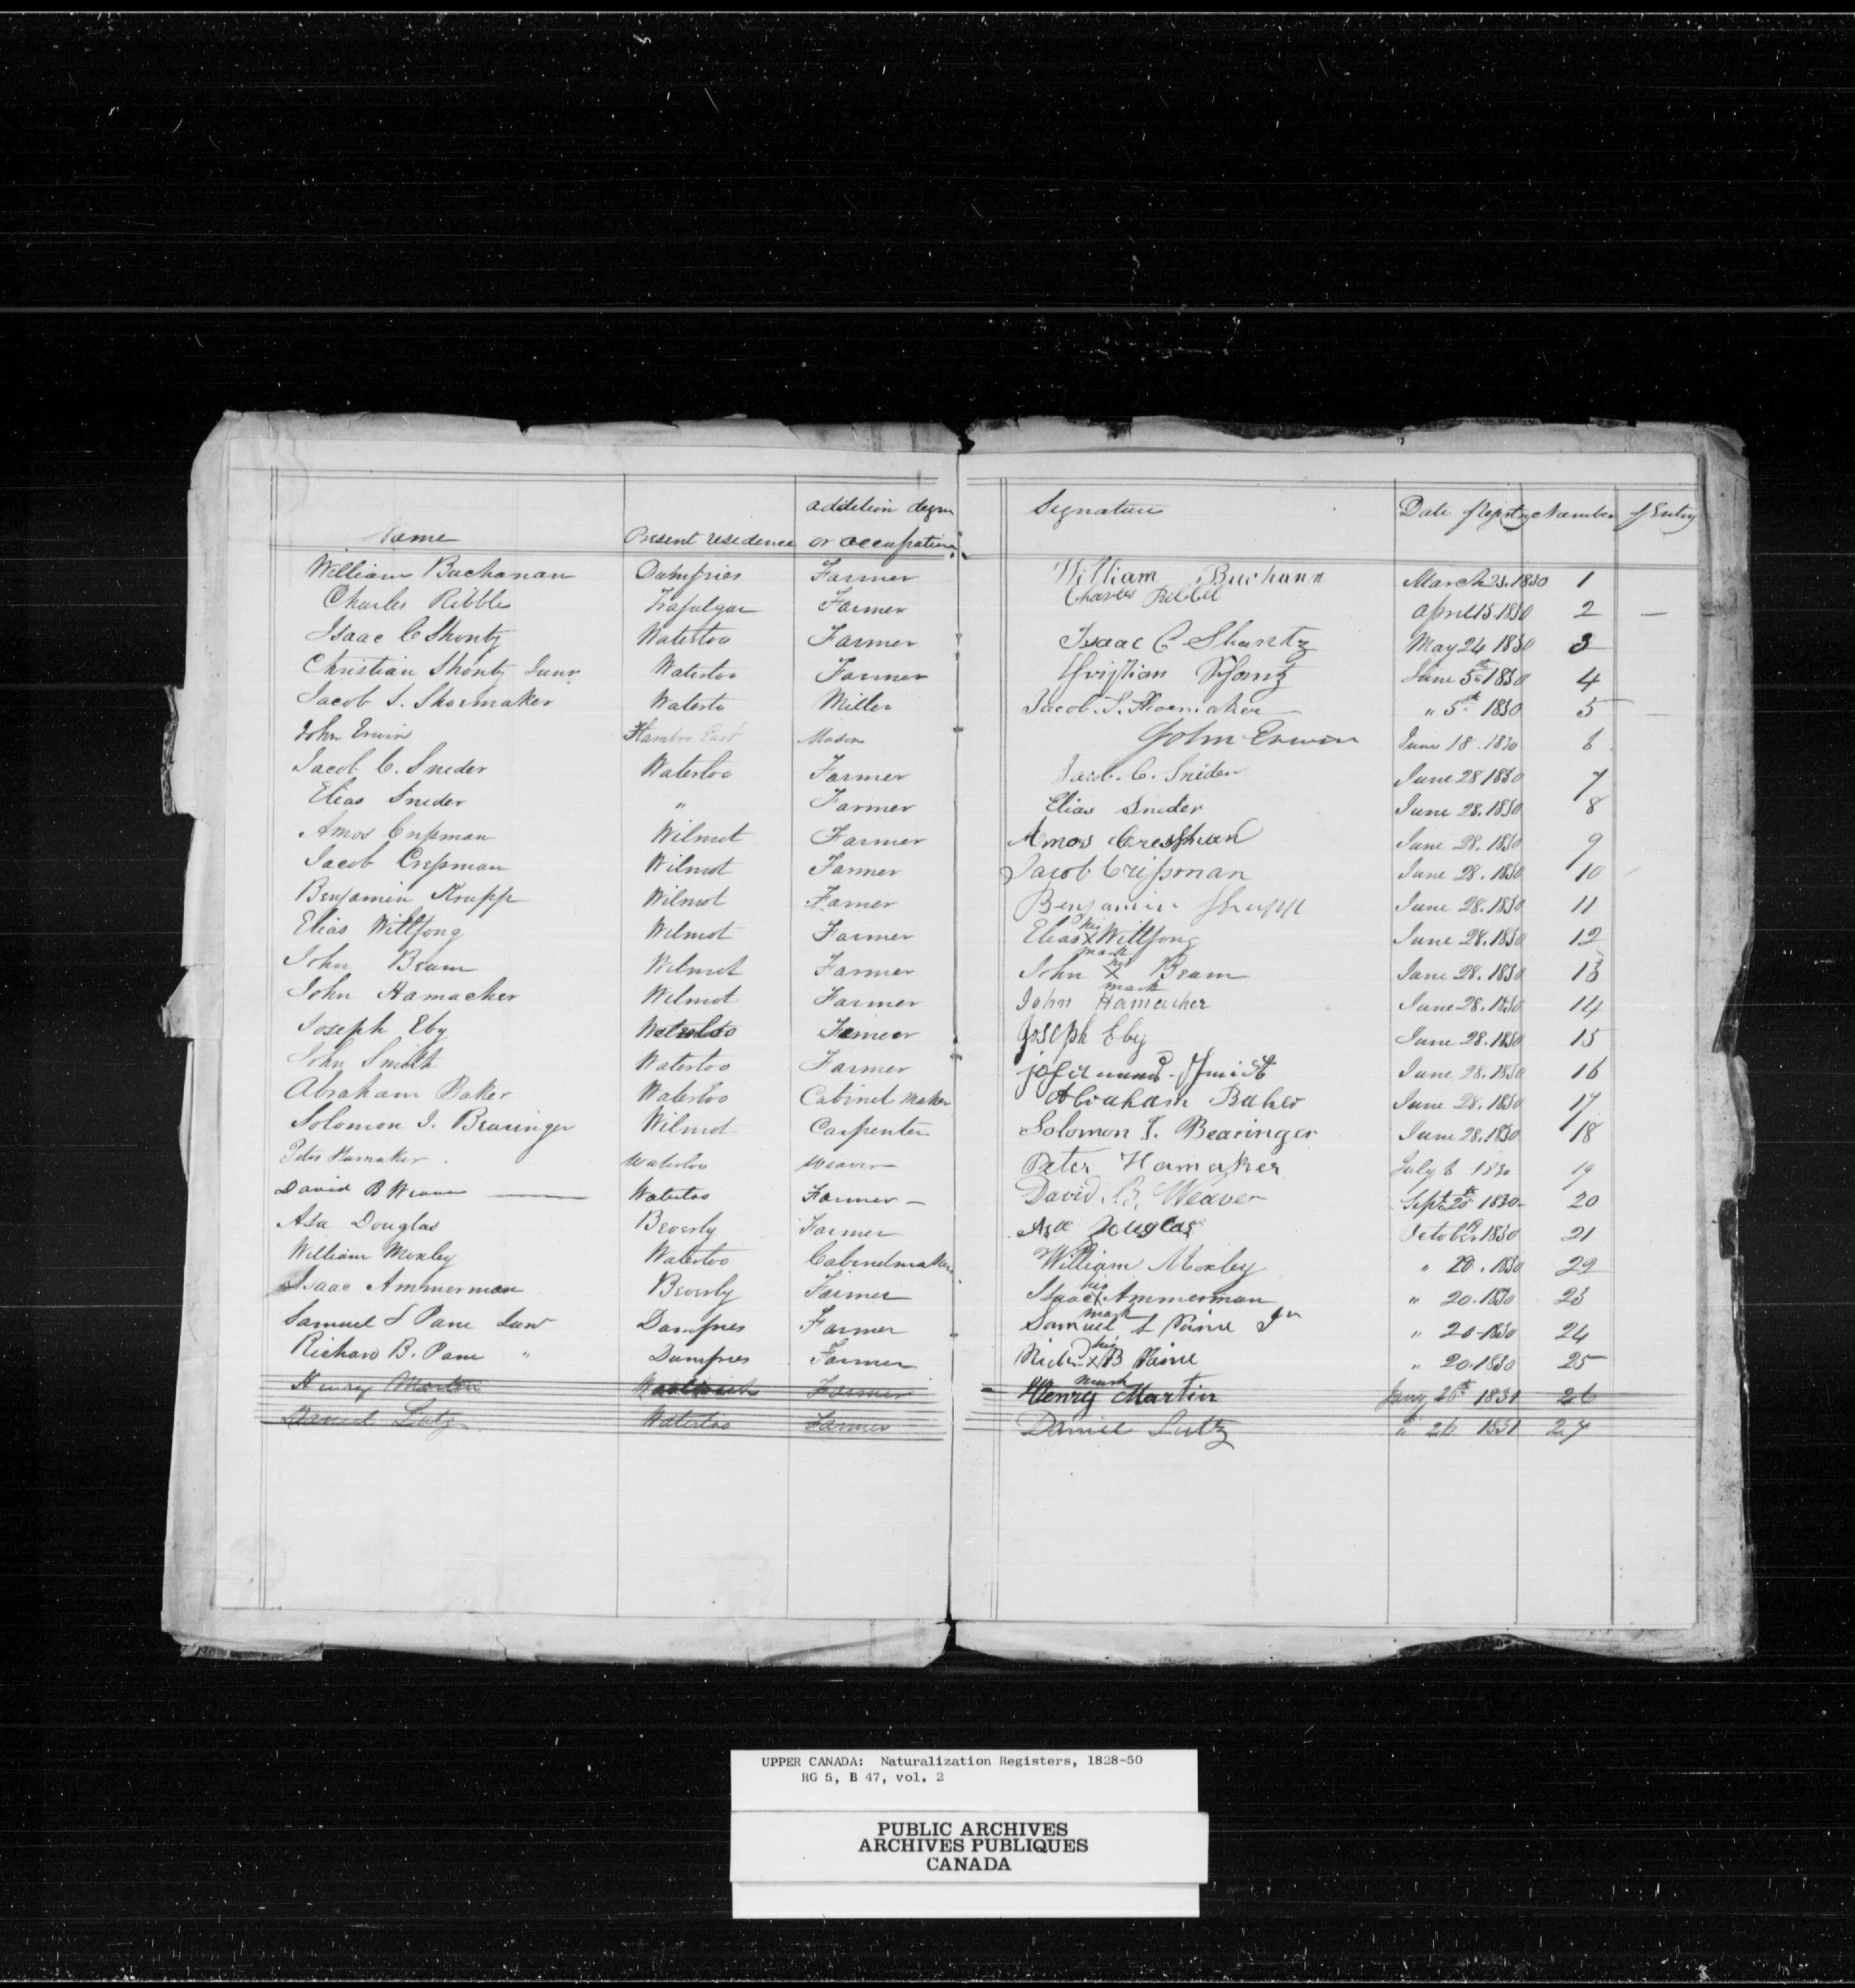 addition degree Signature Date of Registry Number of Entry
Name Present residence or occupation
William Buchanan Dumfries Farmer William Buchann March 23. 1830 1
Charles Ribble Trafalgar Farmer Charles Ribbel April 15. 1830 2 —
Isaac C Shontz Waterloo Farmer Isaac C Shantz May 24 1830 3
Christian Shontz Junr Waterloo Farmer Christian Schantz June 5th 1830 4
Jacob S. Shoemaker Waterlo Miller Jacob. S. Shoemaker " 5th 1830 5 —
John Erwin Flambro East Mason John Erwin June 18. 1830 6
Jacob C. Snider Waterloo Farmer Jacob. C. Snider June 28 1830 7
Elias Snider " Farmer Elias Snider June 28. 1830 8
Amos Cressman Wilmot Farmer Amos Cressman June 28. 1830 9
Jacob Cressman Wilmot Farmer Jacob Crissman June 28. 1830 10
Benjamin Wilmot Farmer Benjamin June 28. 1830 11
Elias Willfong Wilmot Farmer Elias his X mark Willfong June 28. 1830 12
John Beam Wilmot Farmer John his X mark Beam June 28. 1830 13
John Hamacher Wilmot Farmer John Hamacher June 28. 1830 14
Joseph Eby Waterloo Farmer Joseph Eby June 28. 1830 15
John Smith Waterloo Farmer June 28. 1830 16
Abraham Baker Waterloo Cabinet Maker Abraham Baker June 28. 1830 17
Solomon J. Bearinger Wilmot Carpenter Solomon J. Bearinger June 28. 1830 18
Peter Hamaker. Waterloo Weaver Peter Hamaker July 6 1830 19
David B Weaver — Waterloo Farmer — David B. Weaver Sept. 20th 1830 - 20
Asa Douglas Beverly Farmer Asa Douglas October 1830 21
William Moxley Waterloo Cabinetmaker William Moxley " 20. 1830 29
Isaac Ammerman Beverly Farmer Isaac his X mark Ammerman " 20. 1830 23
Samuel S Pane Junr Dumfries Farmer Samuel S Paine Jn " 20 - 1830 24
Richard B. Pane " Dumfries Farmer Richd his X mark B Paine " 20. 1830 25
Henry Martin Woolwich Farmer Henry Martin Jany 26th 1831 26
Daniel Lutz Waterloo Farmer Daniel Lutz " 26 1831 27
UPPER CANADA: Naturalization Registers, 1828-50
RG 5, B 47, vol. 2
PUBLIC ARCHIVES
ARCHIVES PUBLIQUES
CANADA